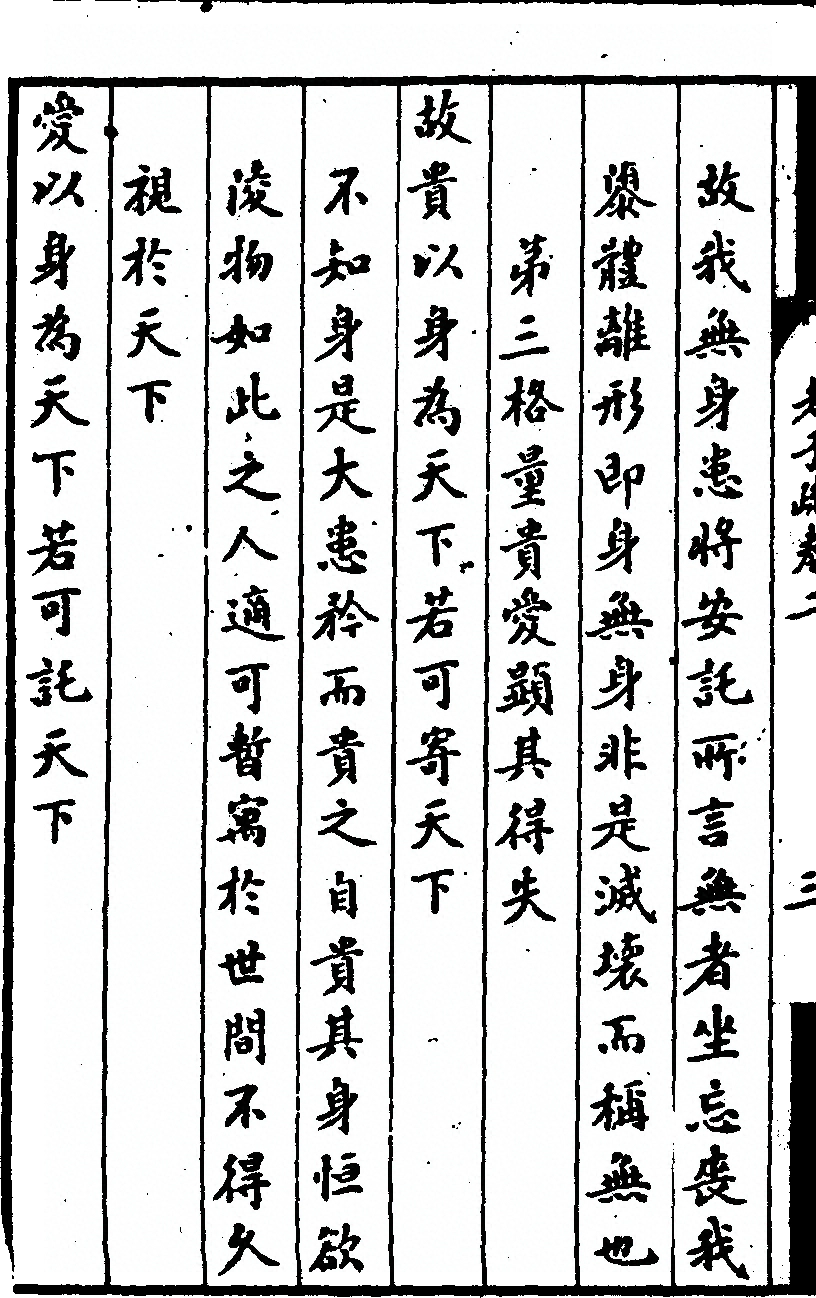 老子疏卷二 三
故我無身患將安託所言無者坐忘喪我
體離形即身無身非是滅壞而稱無也
第三格量貴愛顯其得失
故貴以身為天下若可寄天下
不知身是大患矜而貴之自貴其身恒欲
淩物如此之人適可暫寓於世間不得久
視於天下
愛以身為天下若可託天下